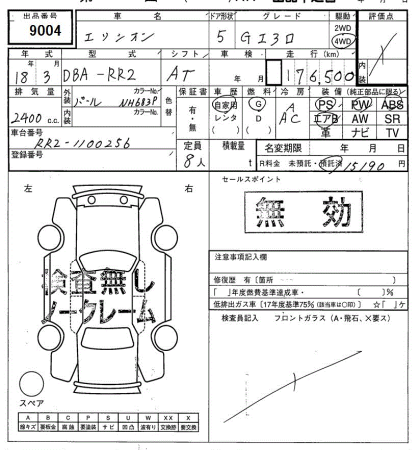 出品番号 車名 ドア形状 グレード 駆動 評価点
9004 エリシオン 5 Gエアロ 2WD 4WD
年式 型式 シフト 車検 走行(km)
18年 3月 DBA-RR2 AT 年 月 176,500
排気量 外装 カラーNo. 色替 保証書 車歴 燃料 冷房 装備(純正部品に限る)
2400 c.c. パール NH683P 有・無 自家用 G AAC PS PW ABS
内装 カラーNo. レンタ D エアB AW SR
( ) ( ) 革 ナビ TV
車台番号 RR2-1100256
定員 8人 積載量 t 名変期限 年 月 日
登録番号
R料金 未預託・預託済 15190 円
左 右
セールスポイント
無効
注意事項記入欄
検査無し
ノークレーム
修復歴 有[箇所 ]
「 」年度燃費基準達成車・ ( )%
低排出ガス車[17年度基準75%(該当車は○印)] ☆「 」ケ
検査員記入 フロントガラス(A・飛石、X要ス)
スペア
A B C P S U W XX X
線キズ 要板金 腐蝕 要塗装 サビ 凹凸 波有り 交換跡 要交換